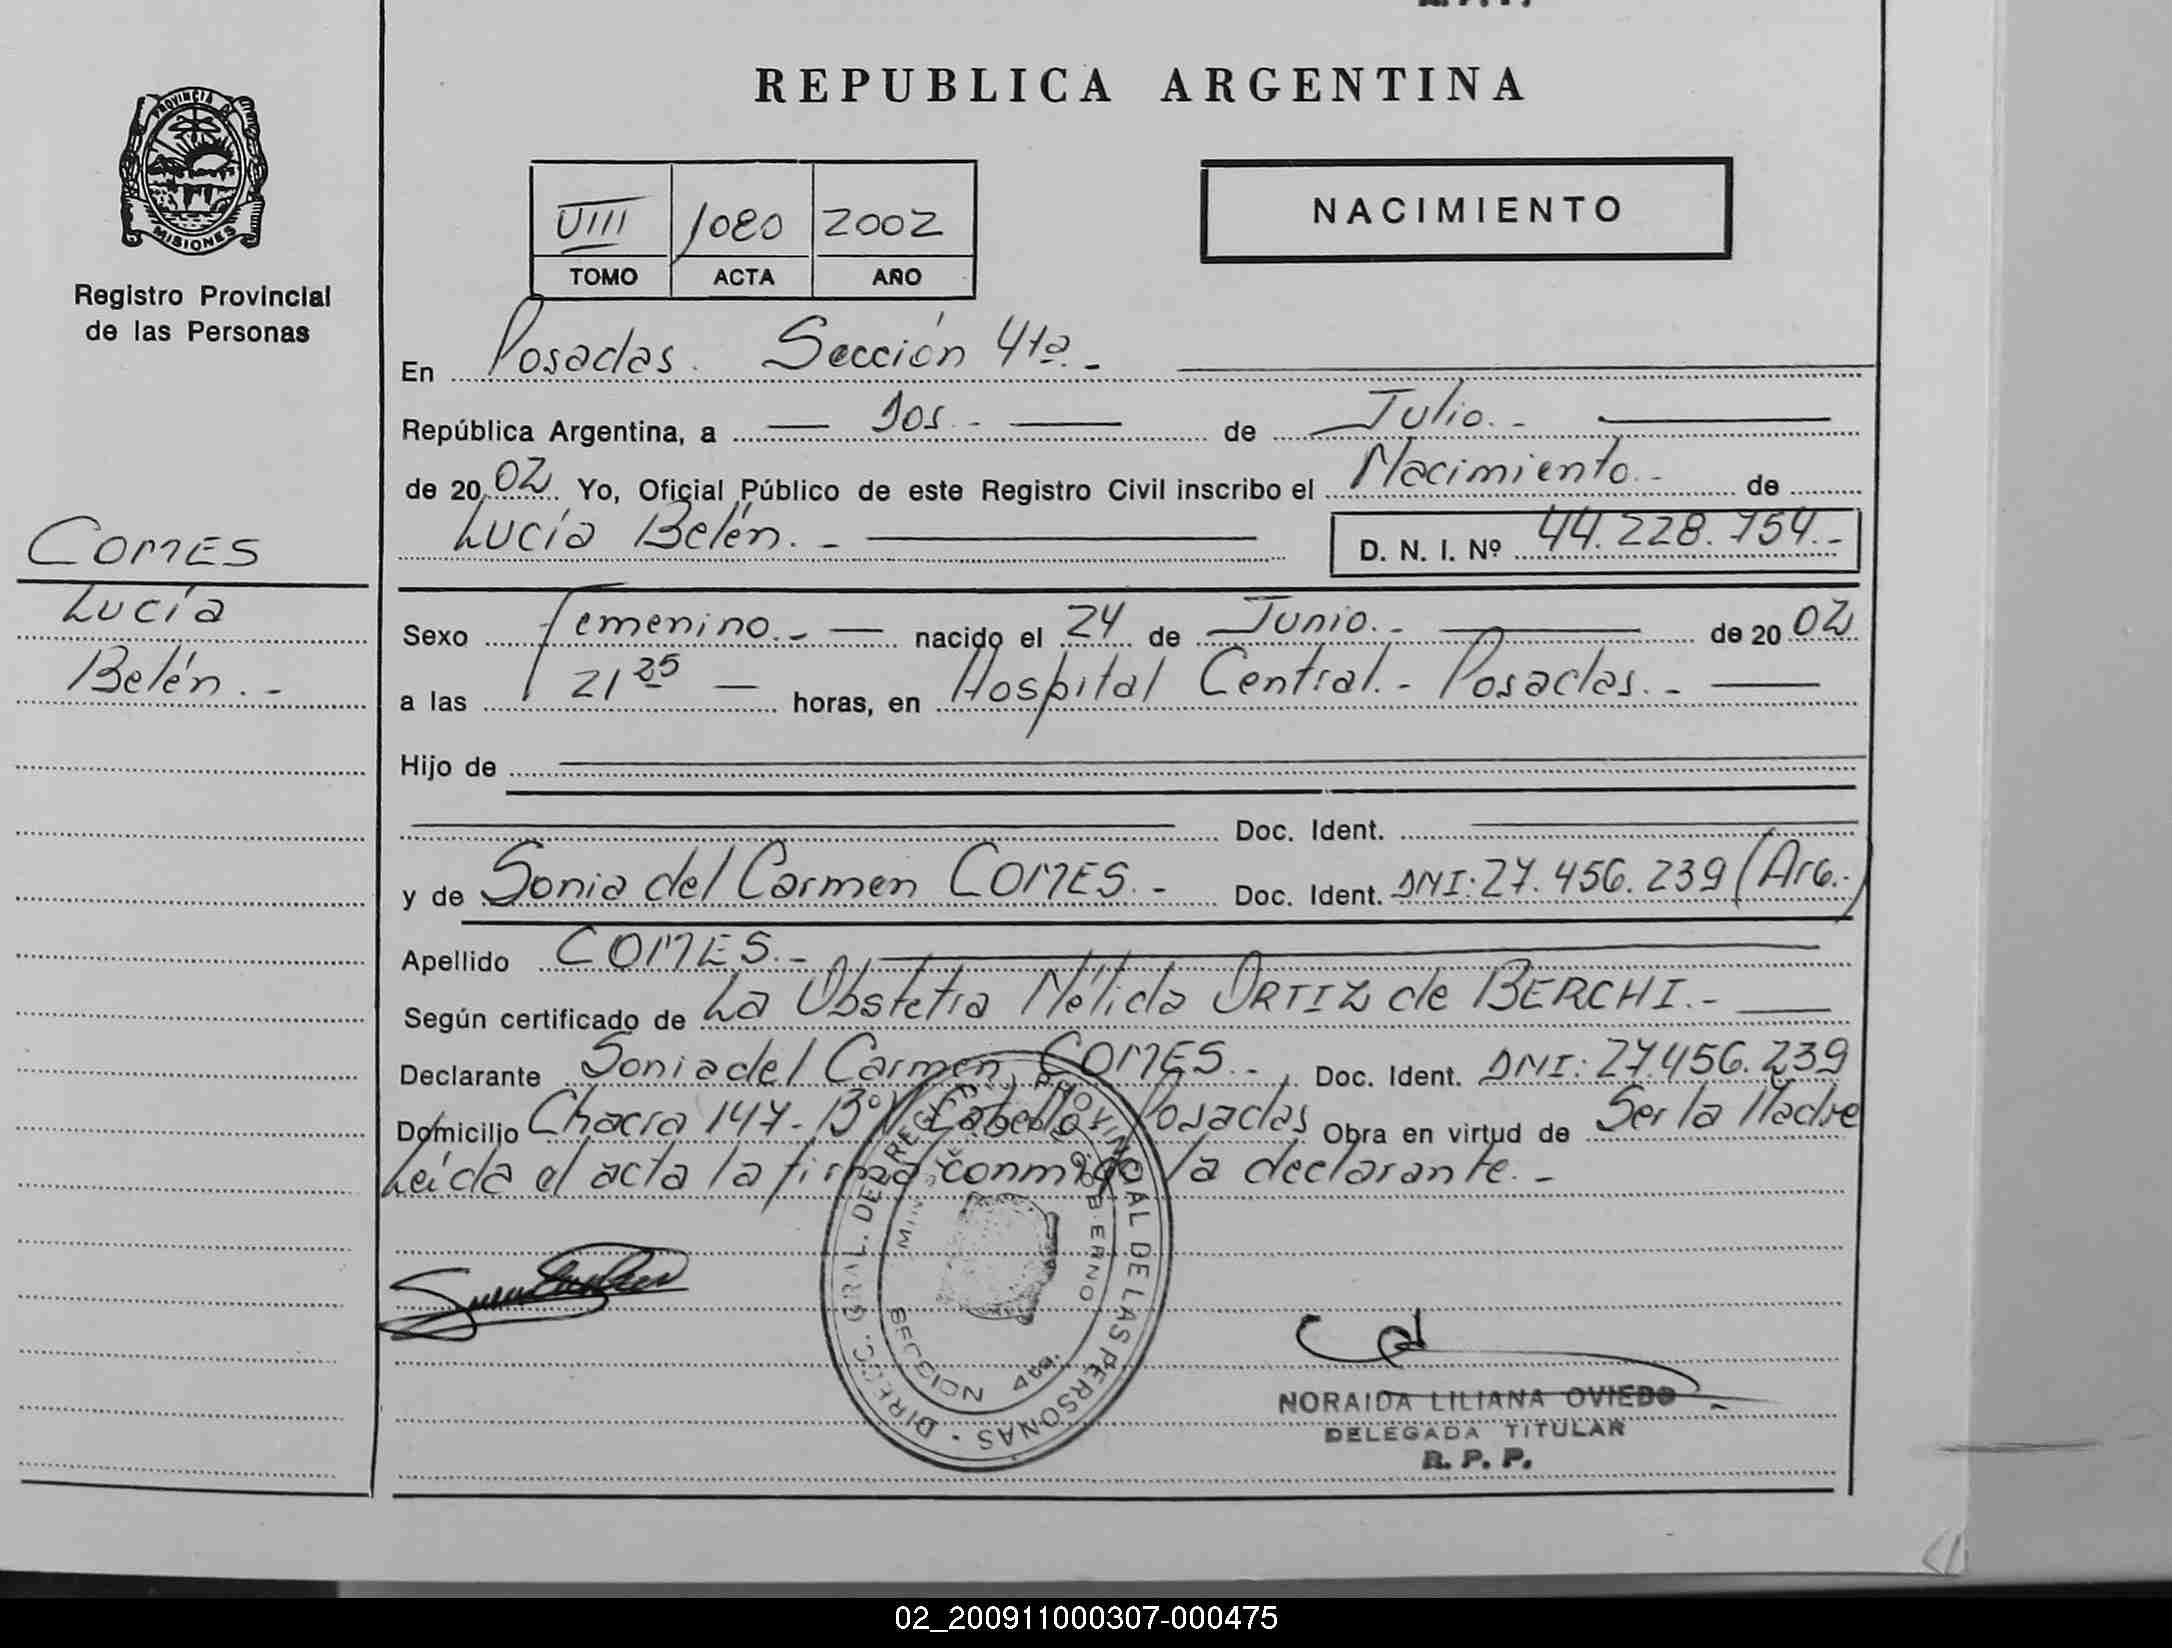 REPUBLICA ARGENTINA
PROVINCIA DE
MISIONES
Registro Provincial
de las Personas
VIII 1080 2002
TOMO ACTA AÑO
NACIMIENTO
En Posadas. Sección 4ta.-
República Argentina, a dos.- de Julio.-
de 2002 Yo, Oficial Público de este Registro Civil inscribo el Nacimiento.- de
Lucía Belén.- D. N. I. Nº 44.228.754.-
COMES
Lucía
Belén.-
Sexo Femenino.- nacido el 24 de Junio.- de 2002
a las 21 25 horas, en Hospital Central.- Posadas.-
Hijo de
Doc. Ident.
y de Sonia del Carmen COMES.- Doc. Ident. DNI: 27.456.239 (Arg.-)
Apellido COMES.-
Según certificado de La Obstetra Nélida ORTIZ de BERCHI.-
Declarante Sonia del Carmen COMES.- Doc. Ident. DNI: 27.456.239
Domicilio Chacra 147- Bº Cabello Posadas Obra en virtud de Ser la Madre
Leída el acta la firma conmigo la declarante.-
DIRECC. GRAL. DEL REG. PROVINCIAL DE LAS PERSONAS
GOBIERNO
SECCION 4ta.
NORAIDA LILIANA OVIEDO
DELEGADA TITULAR
R. P. P.
02_200911000307-000475